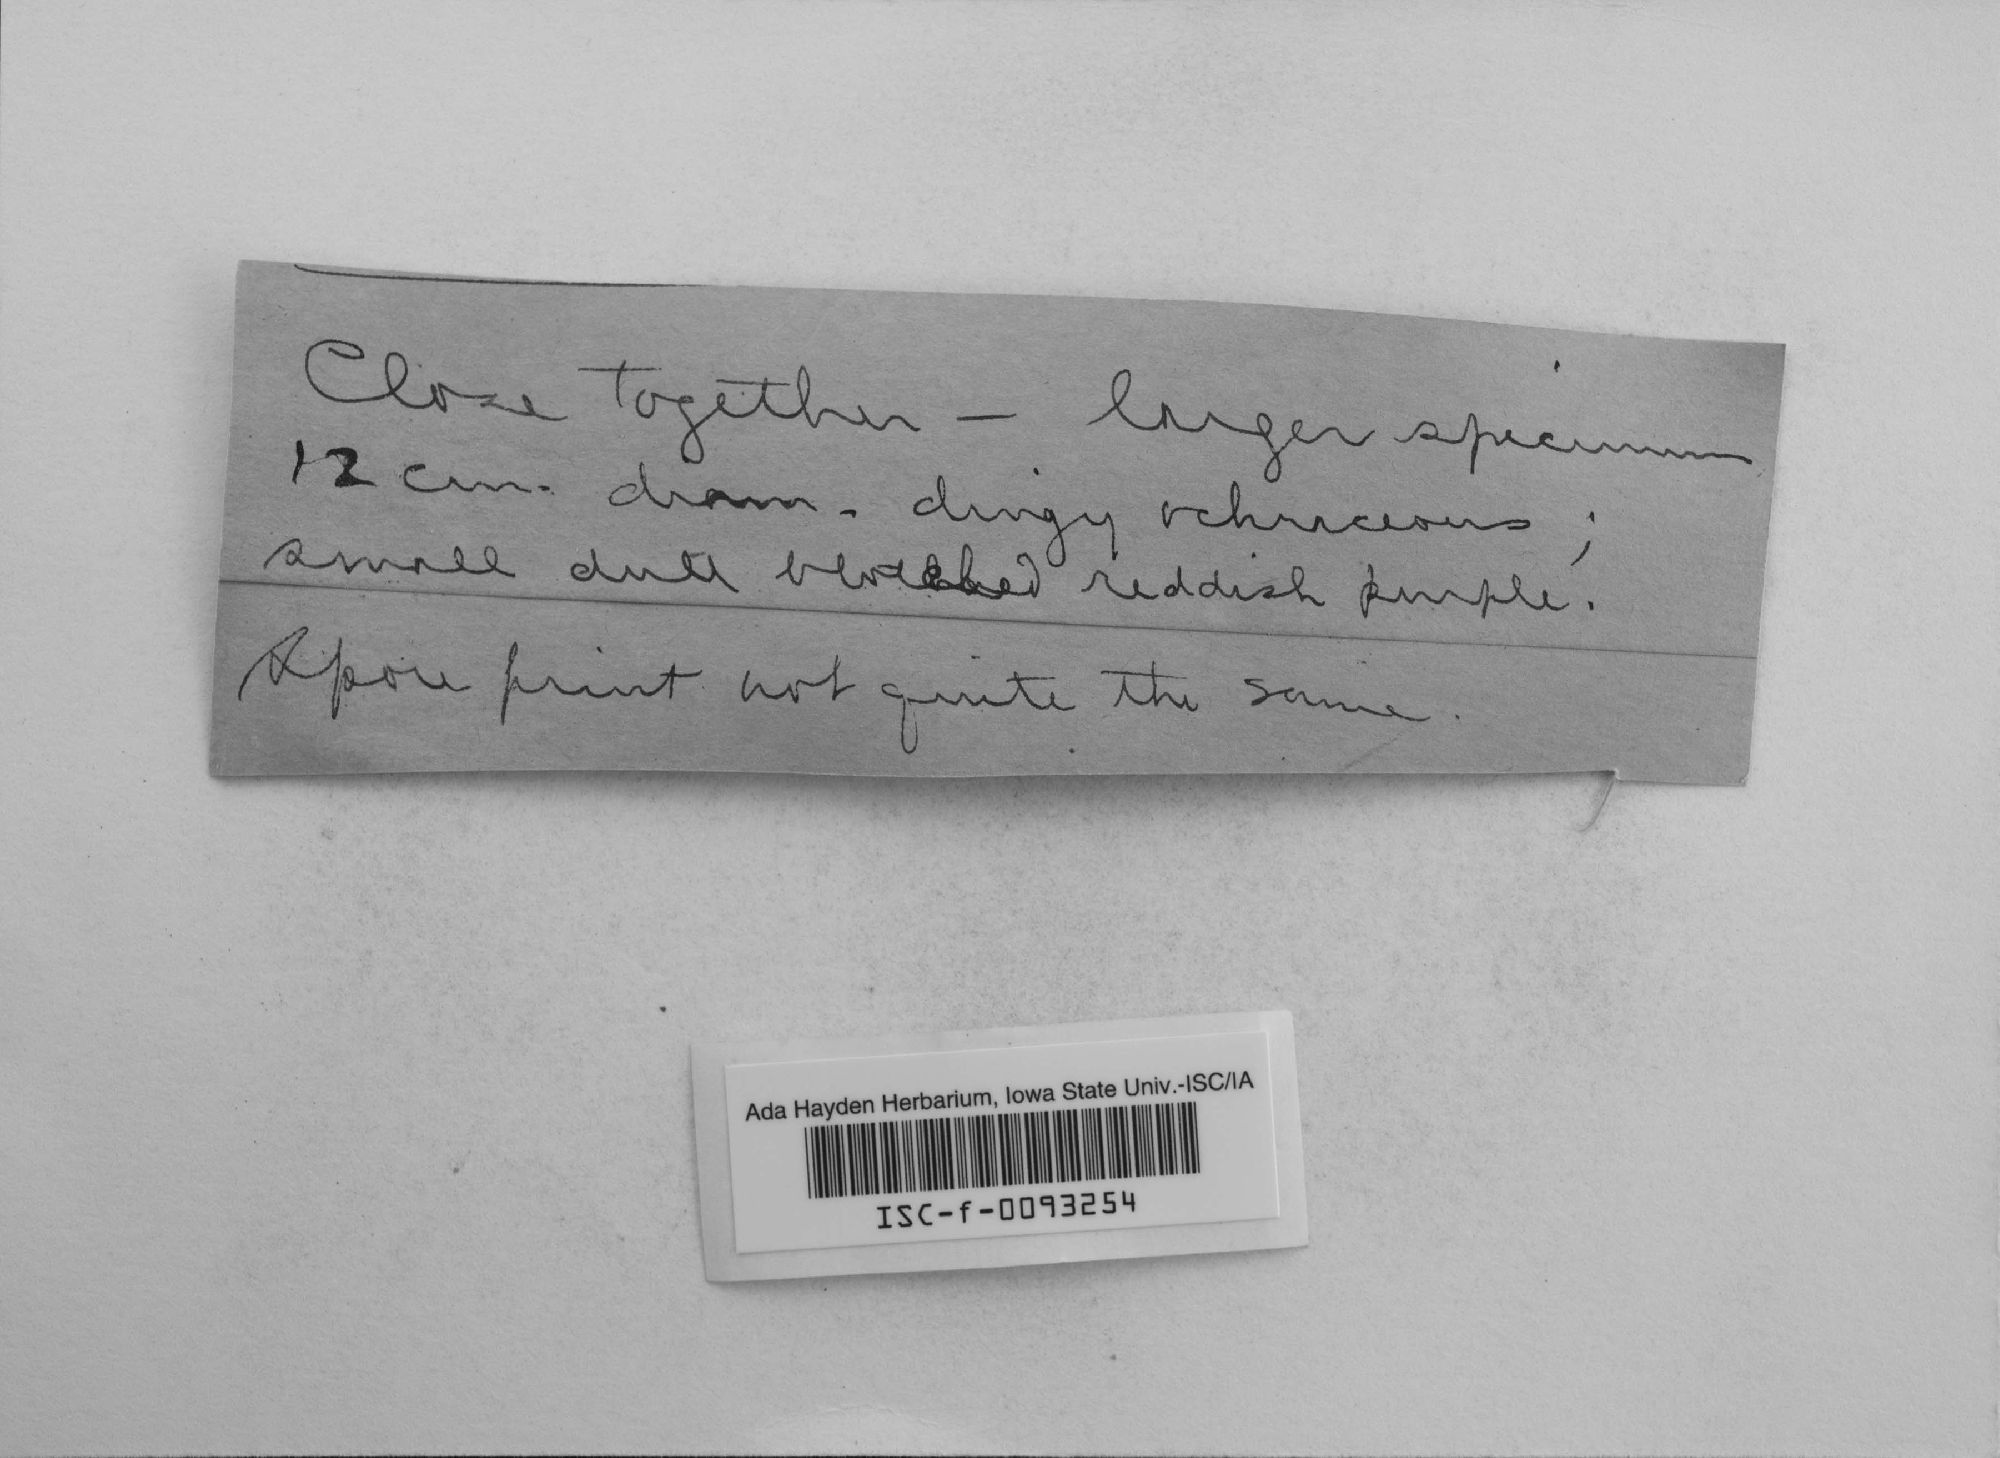 Close together — larger specimen
12 cm. diam. dingy ochraceous;
small dull blotched reddish purple.
Spore print not quite the same.
Ada Hayden Herbarium, Iowa State Univ.-ISC/IA
ISC-f-0093254